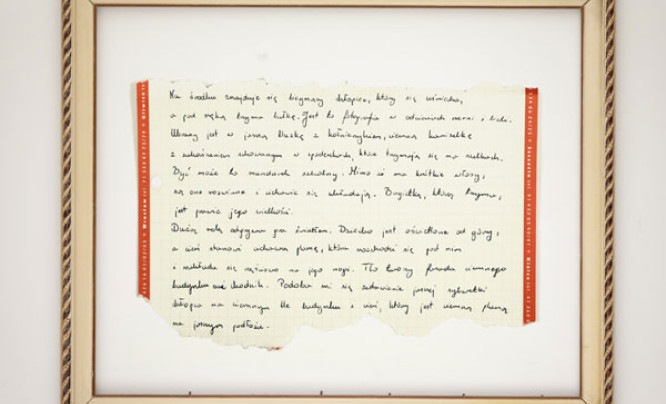 Na środku znajduje się trzymany chłopiec, który się uśmiecha,
a pod ręką trzyma bułkę. Jest to fotografia w odcieniach czerni i bieli.
Ubrany jest w jasną bluzkę z kołnierzykiem, ciemną kamizelkę
z schowanym w spodenkach, które trzymają się na szelkach.
Być może to mundurek szkolny. Mimo iż ma krótkie włosy,
są one rozwiane i ciekawie się układają. Bagietka, którą trzyma,
jest prawie jego wielkości.
Dużą rolę odgrywa gra światłem. Dziecko jest oświetlone od góry,
a cień stanowi ciekawą plamę, która rozchodzi się pod nim
i nakłada się na jego nogi. Tło tworzy fasada ciemnego
budynku oraz chodnik. Podoba mi się zestawienie jasnej sylwetki
chłopca na ciemnym tle budynku i cień, który jest ciemną plamą
na jasnym podłożu.